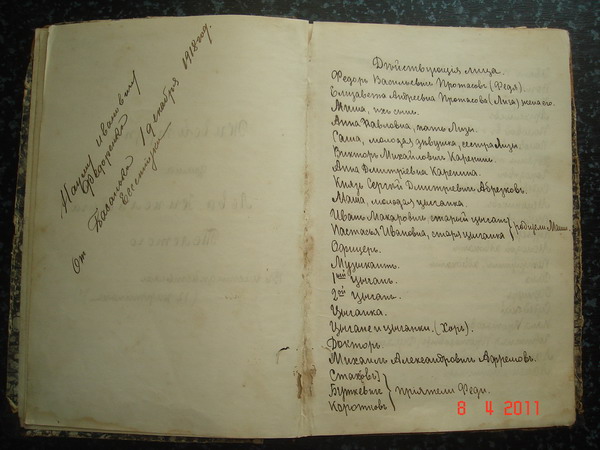 Максиму Ивановичу
Федоренко
От Базановой 1 декабря 1918 год.
Дѣйствующія лица.
Федоръ Васильевичъ Протасовъ (Федя).
Елизавета Андреевна Протасова (Лиза) жена его.
Миша, ихъ сынъ.
Анна Павловна, мать Лизы.
Саша, молодая дѣвушка, сестра Лизы.
Викторъ Михайловичъ Каренинъ.
Анна Дмитріевна Каренина.
Князь Сергѣй Дмитріевичъ Абрезковъ.
Маша, молодая цыганка.
Иванъ Макаровичъ старый цыганъ
Настасья Ивановна, старя цыганка } родители Маши.
Офицеръ.
Музыкантъ.
1ый Цыганъ.
2ой Цыганъ.
Цыганка.
Цыгане и цыганки. (Хоръ).
Докторъ.
Михаилъ Александровичъ Афремовъ.
Стаховъ
Буткевичъ } приятели Феди.
Коротковъ
8 4 2011